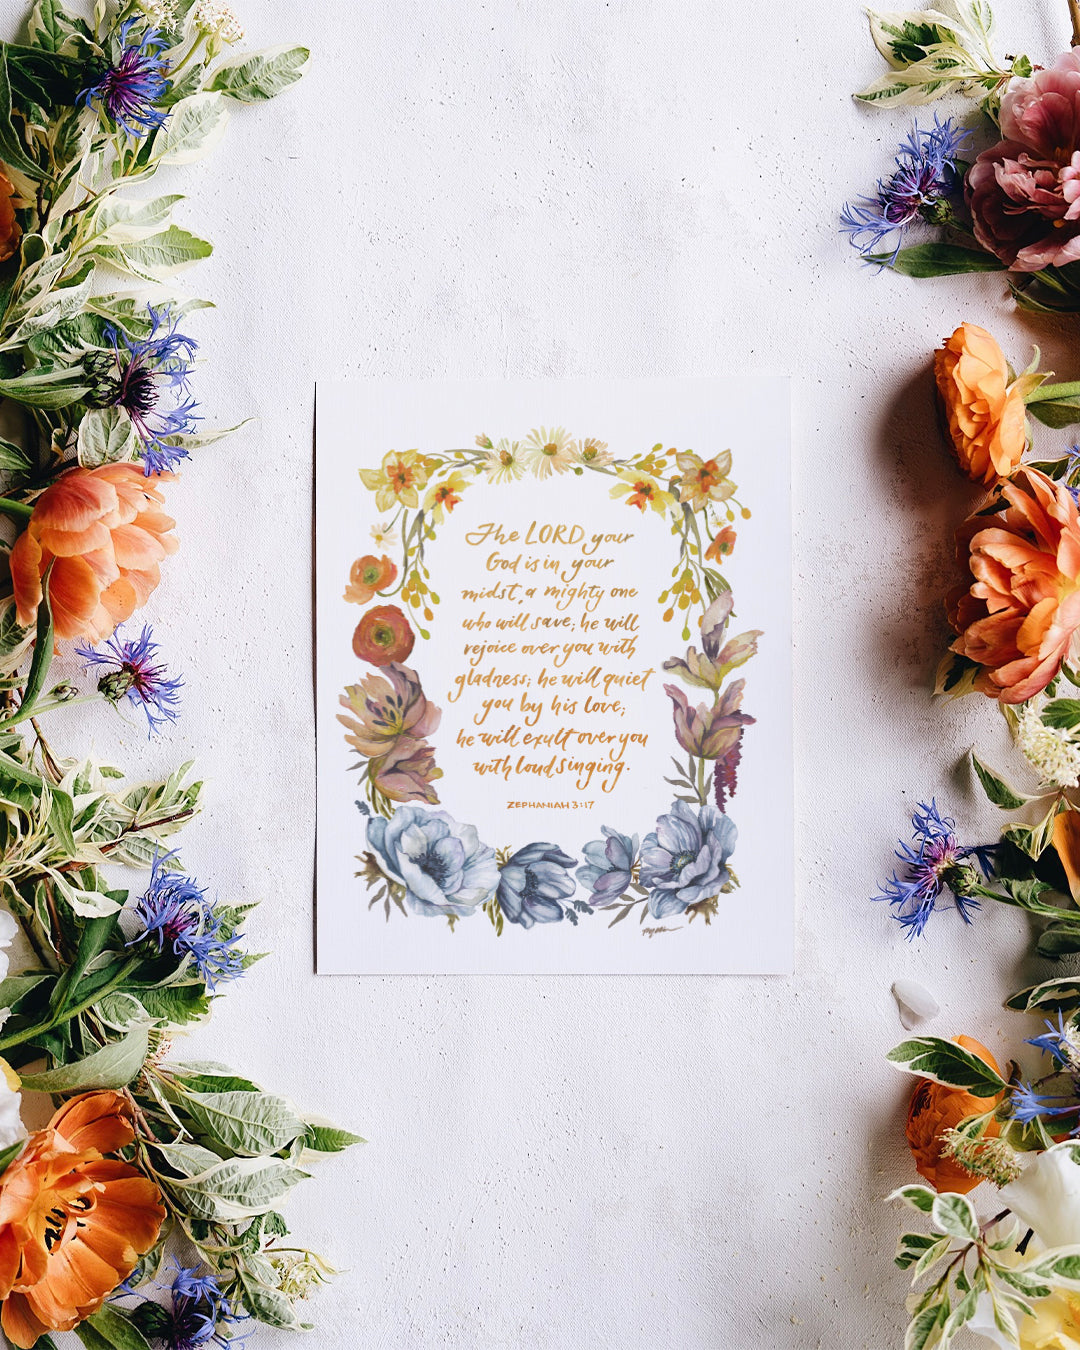 The LORD your
God is in your
midst, a mighty one
who will save; he will
rejoice over you with
gladness; he will quiet
you by his love;
he will exult over you
with loud singing.
ZEPHANIAH 3:17